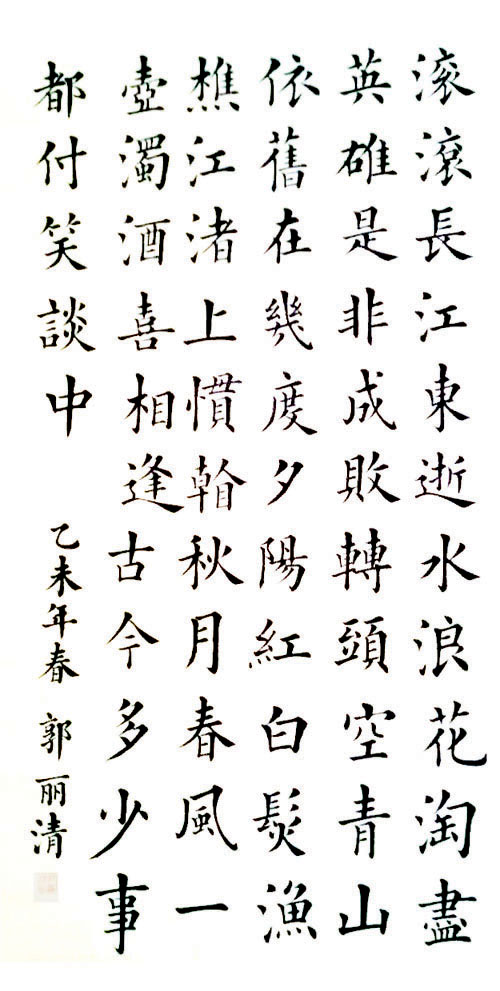 滚滾長江東逝水浪花淘盡
英雄是非成敗轉頭空青山
依舊在幾度夕陽紅白髮漁
樵江渚上慣看秋月春風一
壺濁酒喜相逢古今多少事
都付笑談中
乙未年春 郭丽清